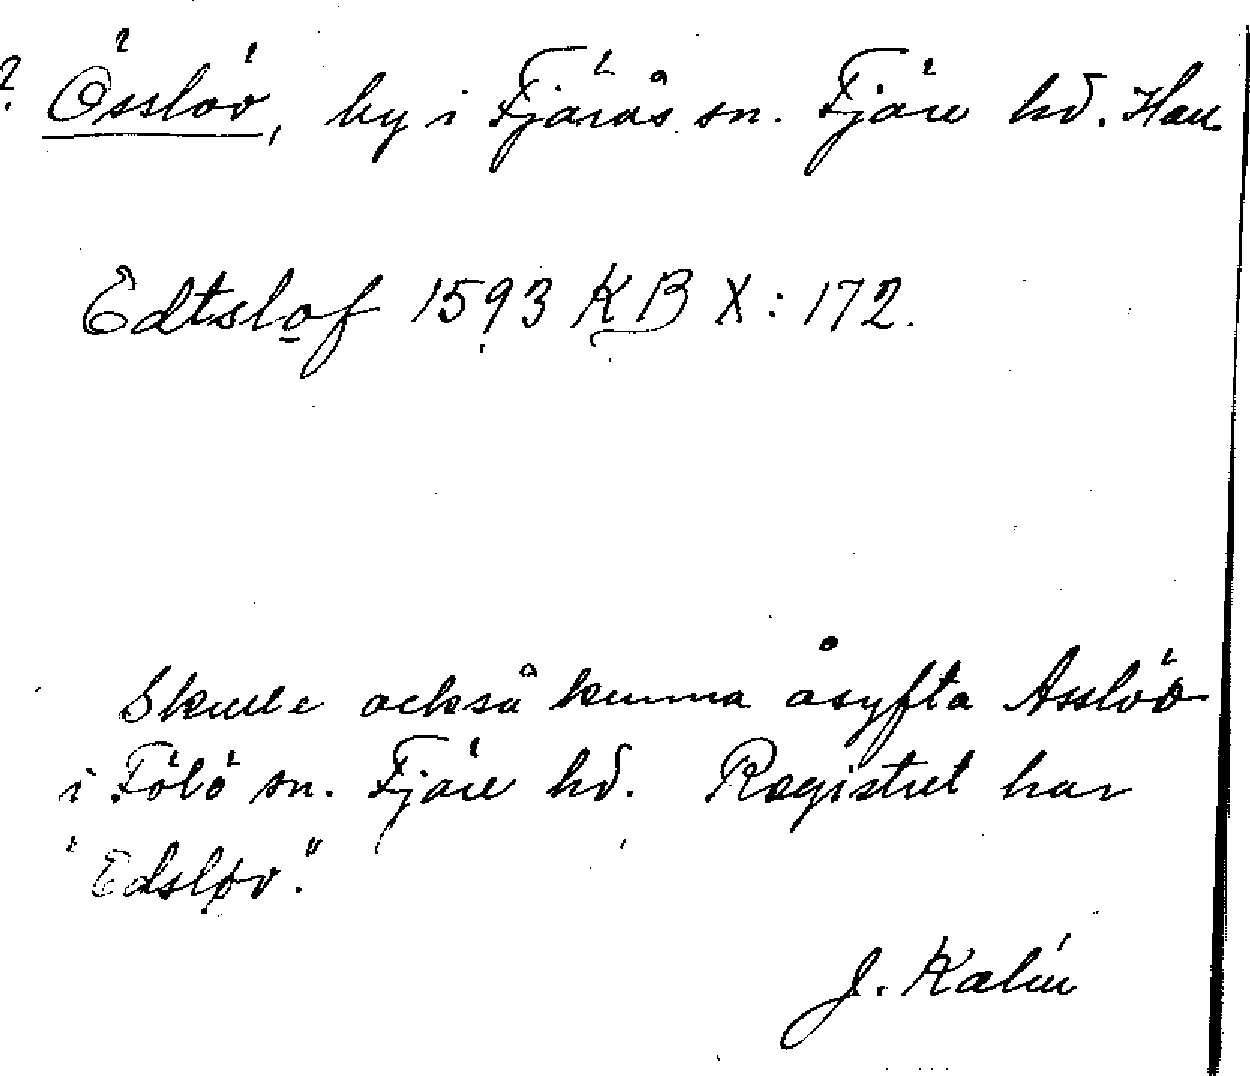 ? Össlöv, by i Fjärås sn. Fjäre hd. Hall.
Edtslof 1593 KB X: 172.
Skulle också kunna åsyfta Asslöv
i Fölö sn. Fjäre hd. Registret har
"Edsløv."
J. Kalén